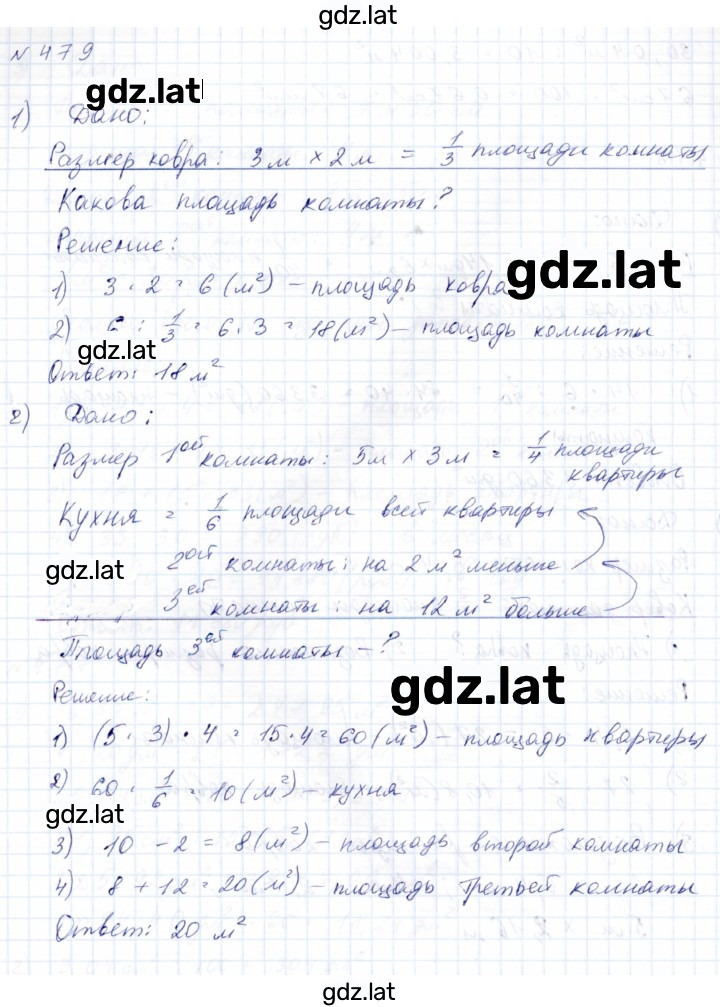 gdz.lat
№ 479
gdz.lat
1) Дано:
Размер ковра: 3м × 2м = 1/3 площади комнаты
Какова площадь комнаты?
Решение:
gdz.lat
1) 3 · 2 = 6 (м²) – площадь ковра
2) 6 : 1/3 = 6 · 3 = 18 (м²) – площадь комнаты
gdz.lat
Ответ: 18 м²
2) Дано:
Размер 1ой комнаты: 5м × 3м = 1/4 площади
квартиры
Кухня = 1/6 площади всей квартиры
gdz.lat
2ой комнаты: на 2 м² меньше
3ей комнаты: на 12 м² больше
Площадь 3ей комнаты – ?
gdz.lat
Решение:
1) (5 · 3) · 4 = 15 · 4 = 60 (м²) – площадь квартиры
2) 60 · 1/6 = 10 (м²) – кухня
gdz.lat
3) 10 – 2 = 8 (м²) – площадь второй комнаты
4) 8 + 12 = 20 (м²) – площадь третьей комнаты
Ответ: 20 м²
gdz.lat